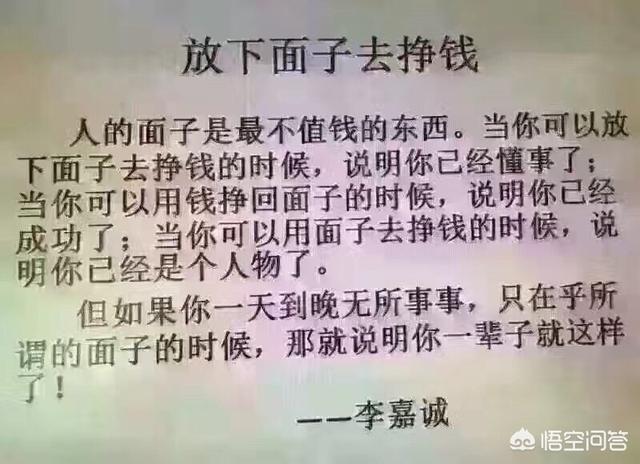 放下面子去挣钱
人的面子是最不值钱的东西。当你可以放
下面子去挣钱的时候，说明你已经懂事了；
当你可以用钱挣回面子的时候，说明你已经
成功了；当你可以用面子去挣钱的时候，说
明你已经是个人物了。
但如果你一天到晚无所事事，只在乎所
谓的面子的时候，那就说明你一辈子就这样
了！
——李嘉诚
悟空问答